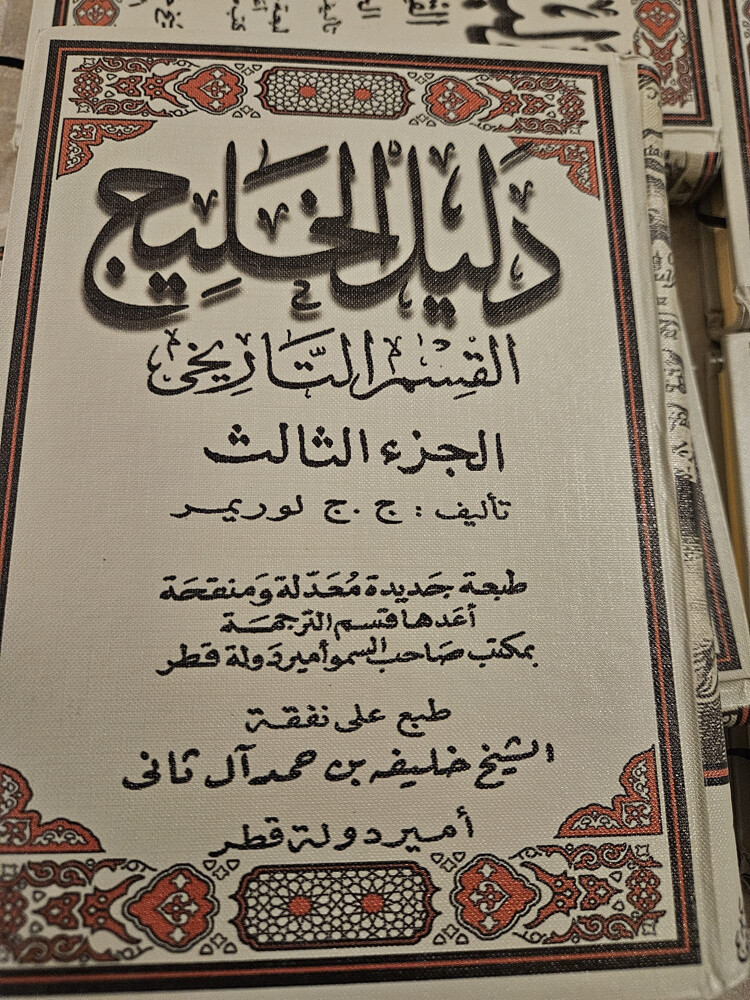 دَلِيل الخَلِيج
القِسْم التَّارِيخى
الجزء الثالث
تأليف : ج . ج لوريمر
طبعة جَديدة مُعَدّلة وَمنقحَة
أعَدها قسم الترجمَة
بمكتب صَاحب السمو أمير دَولة قطر
طبع على نفقة
الشيخ خليفه بن حمد آل ثانى
أمير دولة قطر